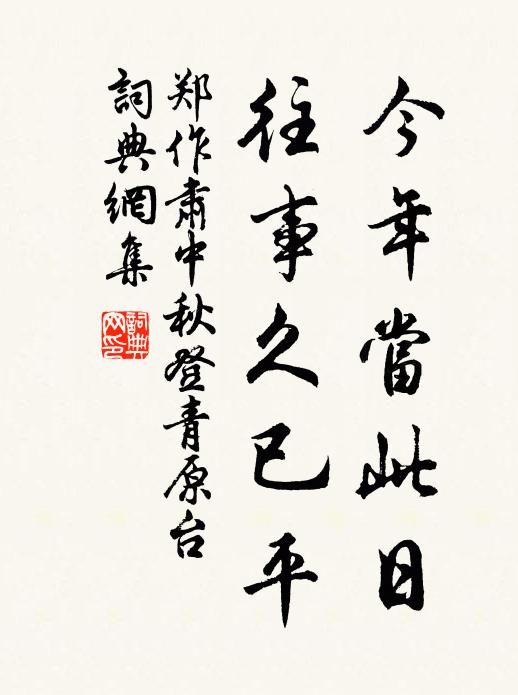 今年當此日
往事久已平
郑作肅中秋登青原台
詞典網集
詞典網印